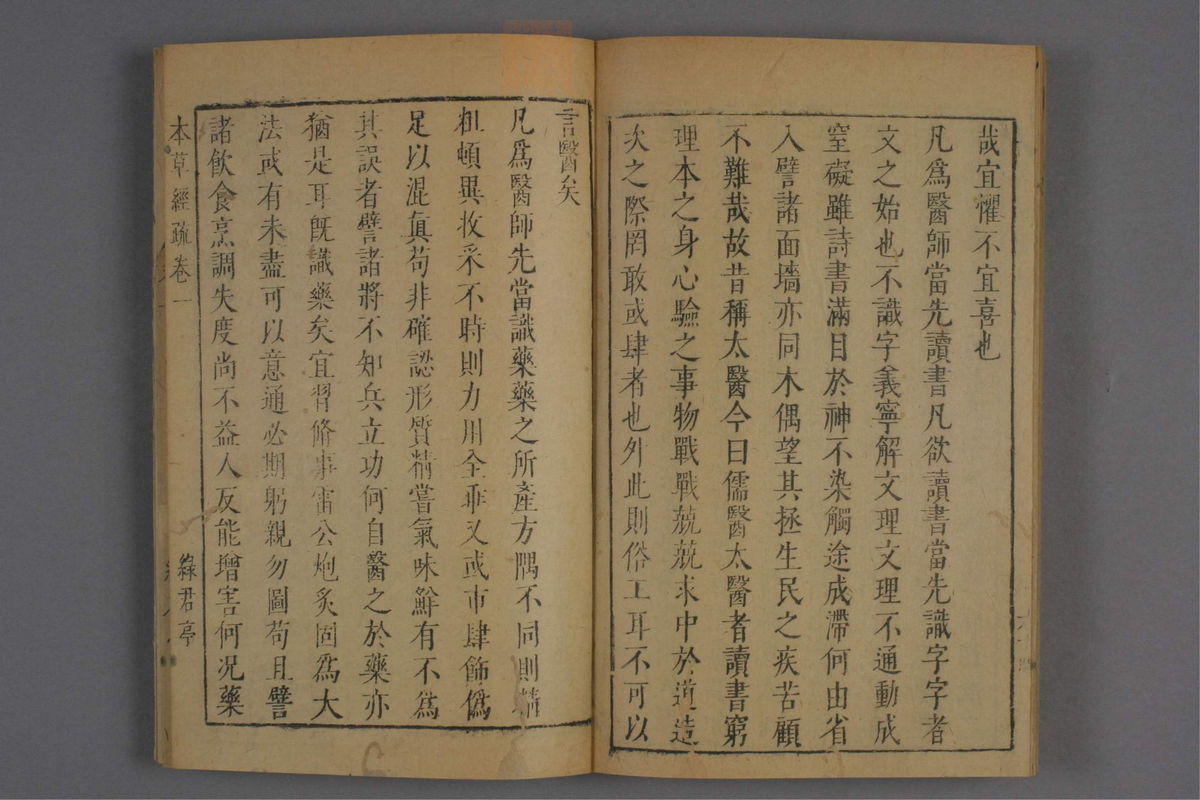 哉宜懼不宜喜也
凡爲醫師當先讀書凡欲讀書當先識字字者
文之始也不識字義寧解文理文理不通動成
窒礙雖詩書滿目於神不染觸途成滯何由省
入譬諸面墻亦同木偶望其拯生民之疾苦顧
不難哉故昔稱太醫今曰儒醫太醫者讀書窮
理本之身心驗之事物戰戰兢兢求中於道造
次之際罔敢或肆者也外此則俗工耳不可以
言醫矣
凡爲醫師先當識藥藥之所產方隅不同則精
粗頓異收采不時則力用全乖又或市肆飾僞
足以混眞苟非確認形質精嘗氣味鮮有不爲
其誤者譬諸將不知兵立功何自醫之於藥亦
猶是耳旣識藥矣宜習脩事雷公炮炙固爲大
法或有未盡可以意通必期躬親勿圖苟且譬
諸飲食烹調失度尚不益人反能增害何况藥
本草經疏卷一
綠君亭